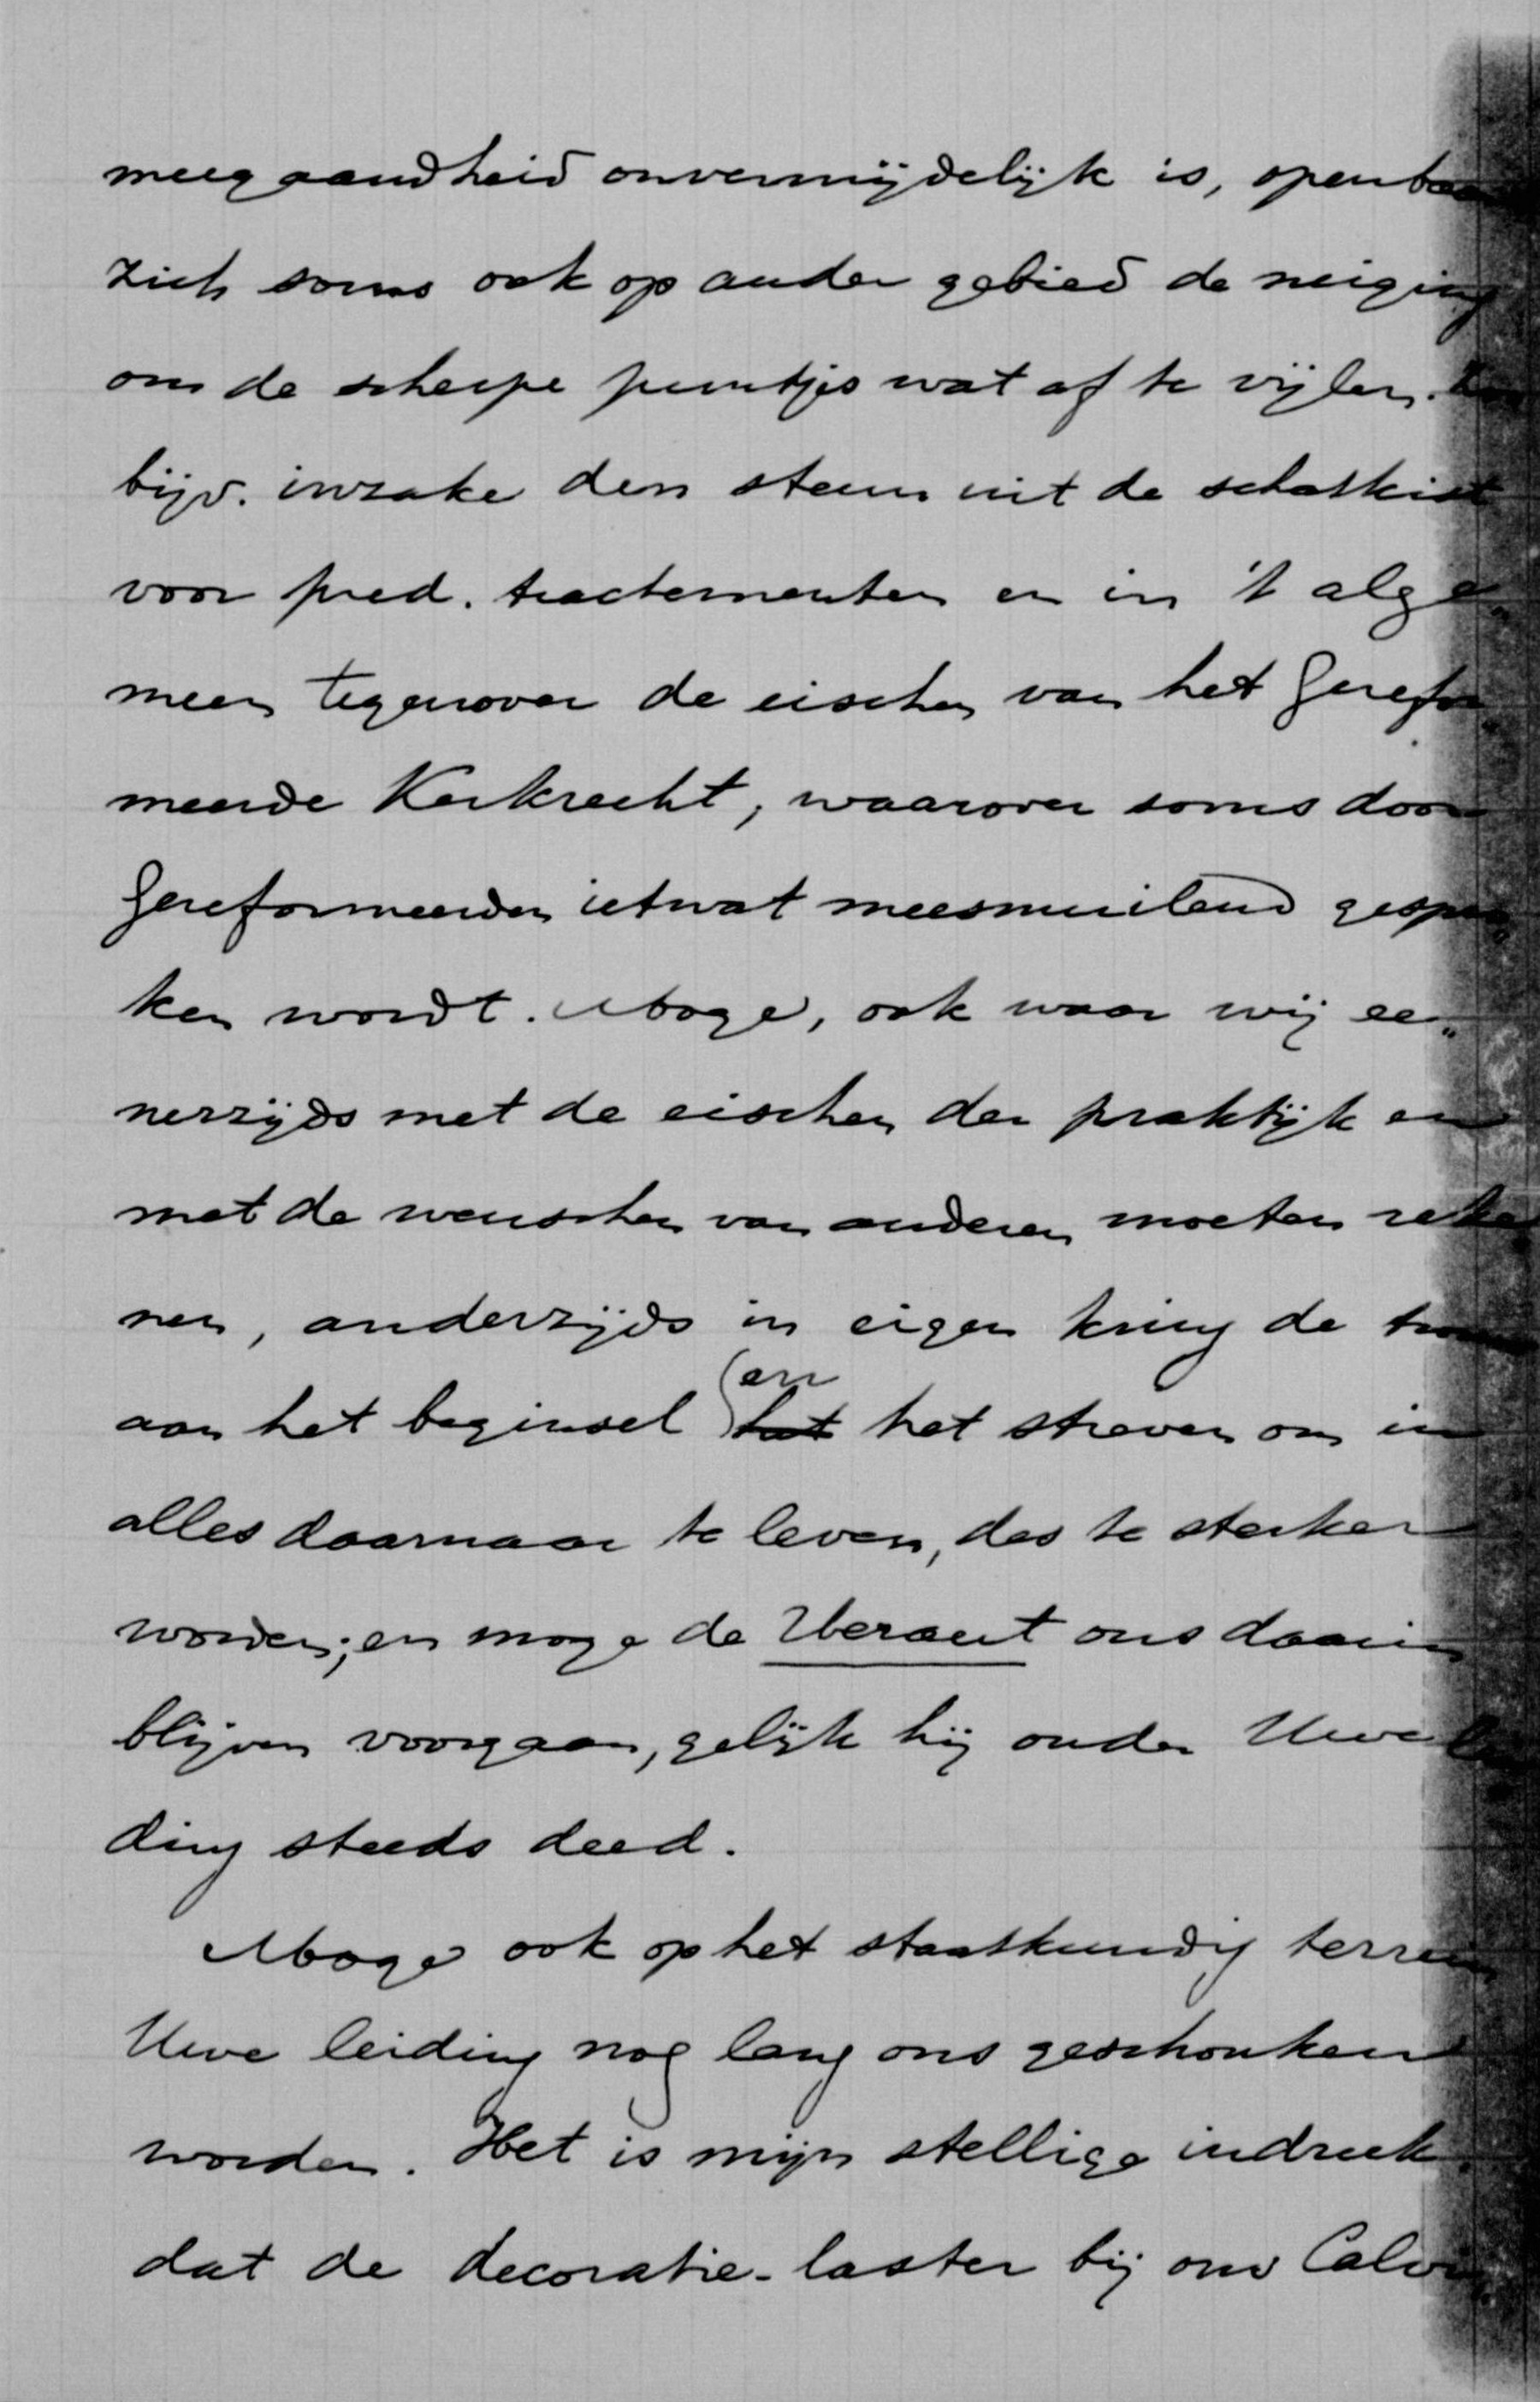 meegaandheid onvermijdelijk is, openbaar
zich soms ook op ander gebied de neiging
om de scherpe puntjes wat af te vijlen. Zoo
bijv. inzake den steun uit de schatkist
voor pred. tractementen en in 't alge„
meen tegenover de eischen van het Gerefor
meerde Kerkrecht, waarover soms door
Gereformeerden ietwat meesmuilend gespro„
ken wordt. Moge, ook waar wij ee„
nerzijds met de eischen der praktijk en
met de wenschen van anderen moeten reke
nen, anderzijds in eigen kring de trouw
aan het beginsel en het het streven om in
alles daarnaar te leven, des te sterker
worden; en moge de Heraut ons daarin
blijven voorgaan, gelijk hij onder Uwe lei
ding steeds deed.
Moge ook op het staatkundig terrein
Uwe leiding nog lang ons geschonken
worden. Het is mijn stellige indruk
dat de decoratie-laster bij ons Calvi„